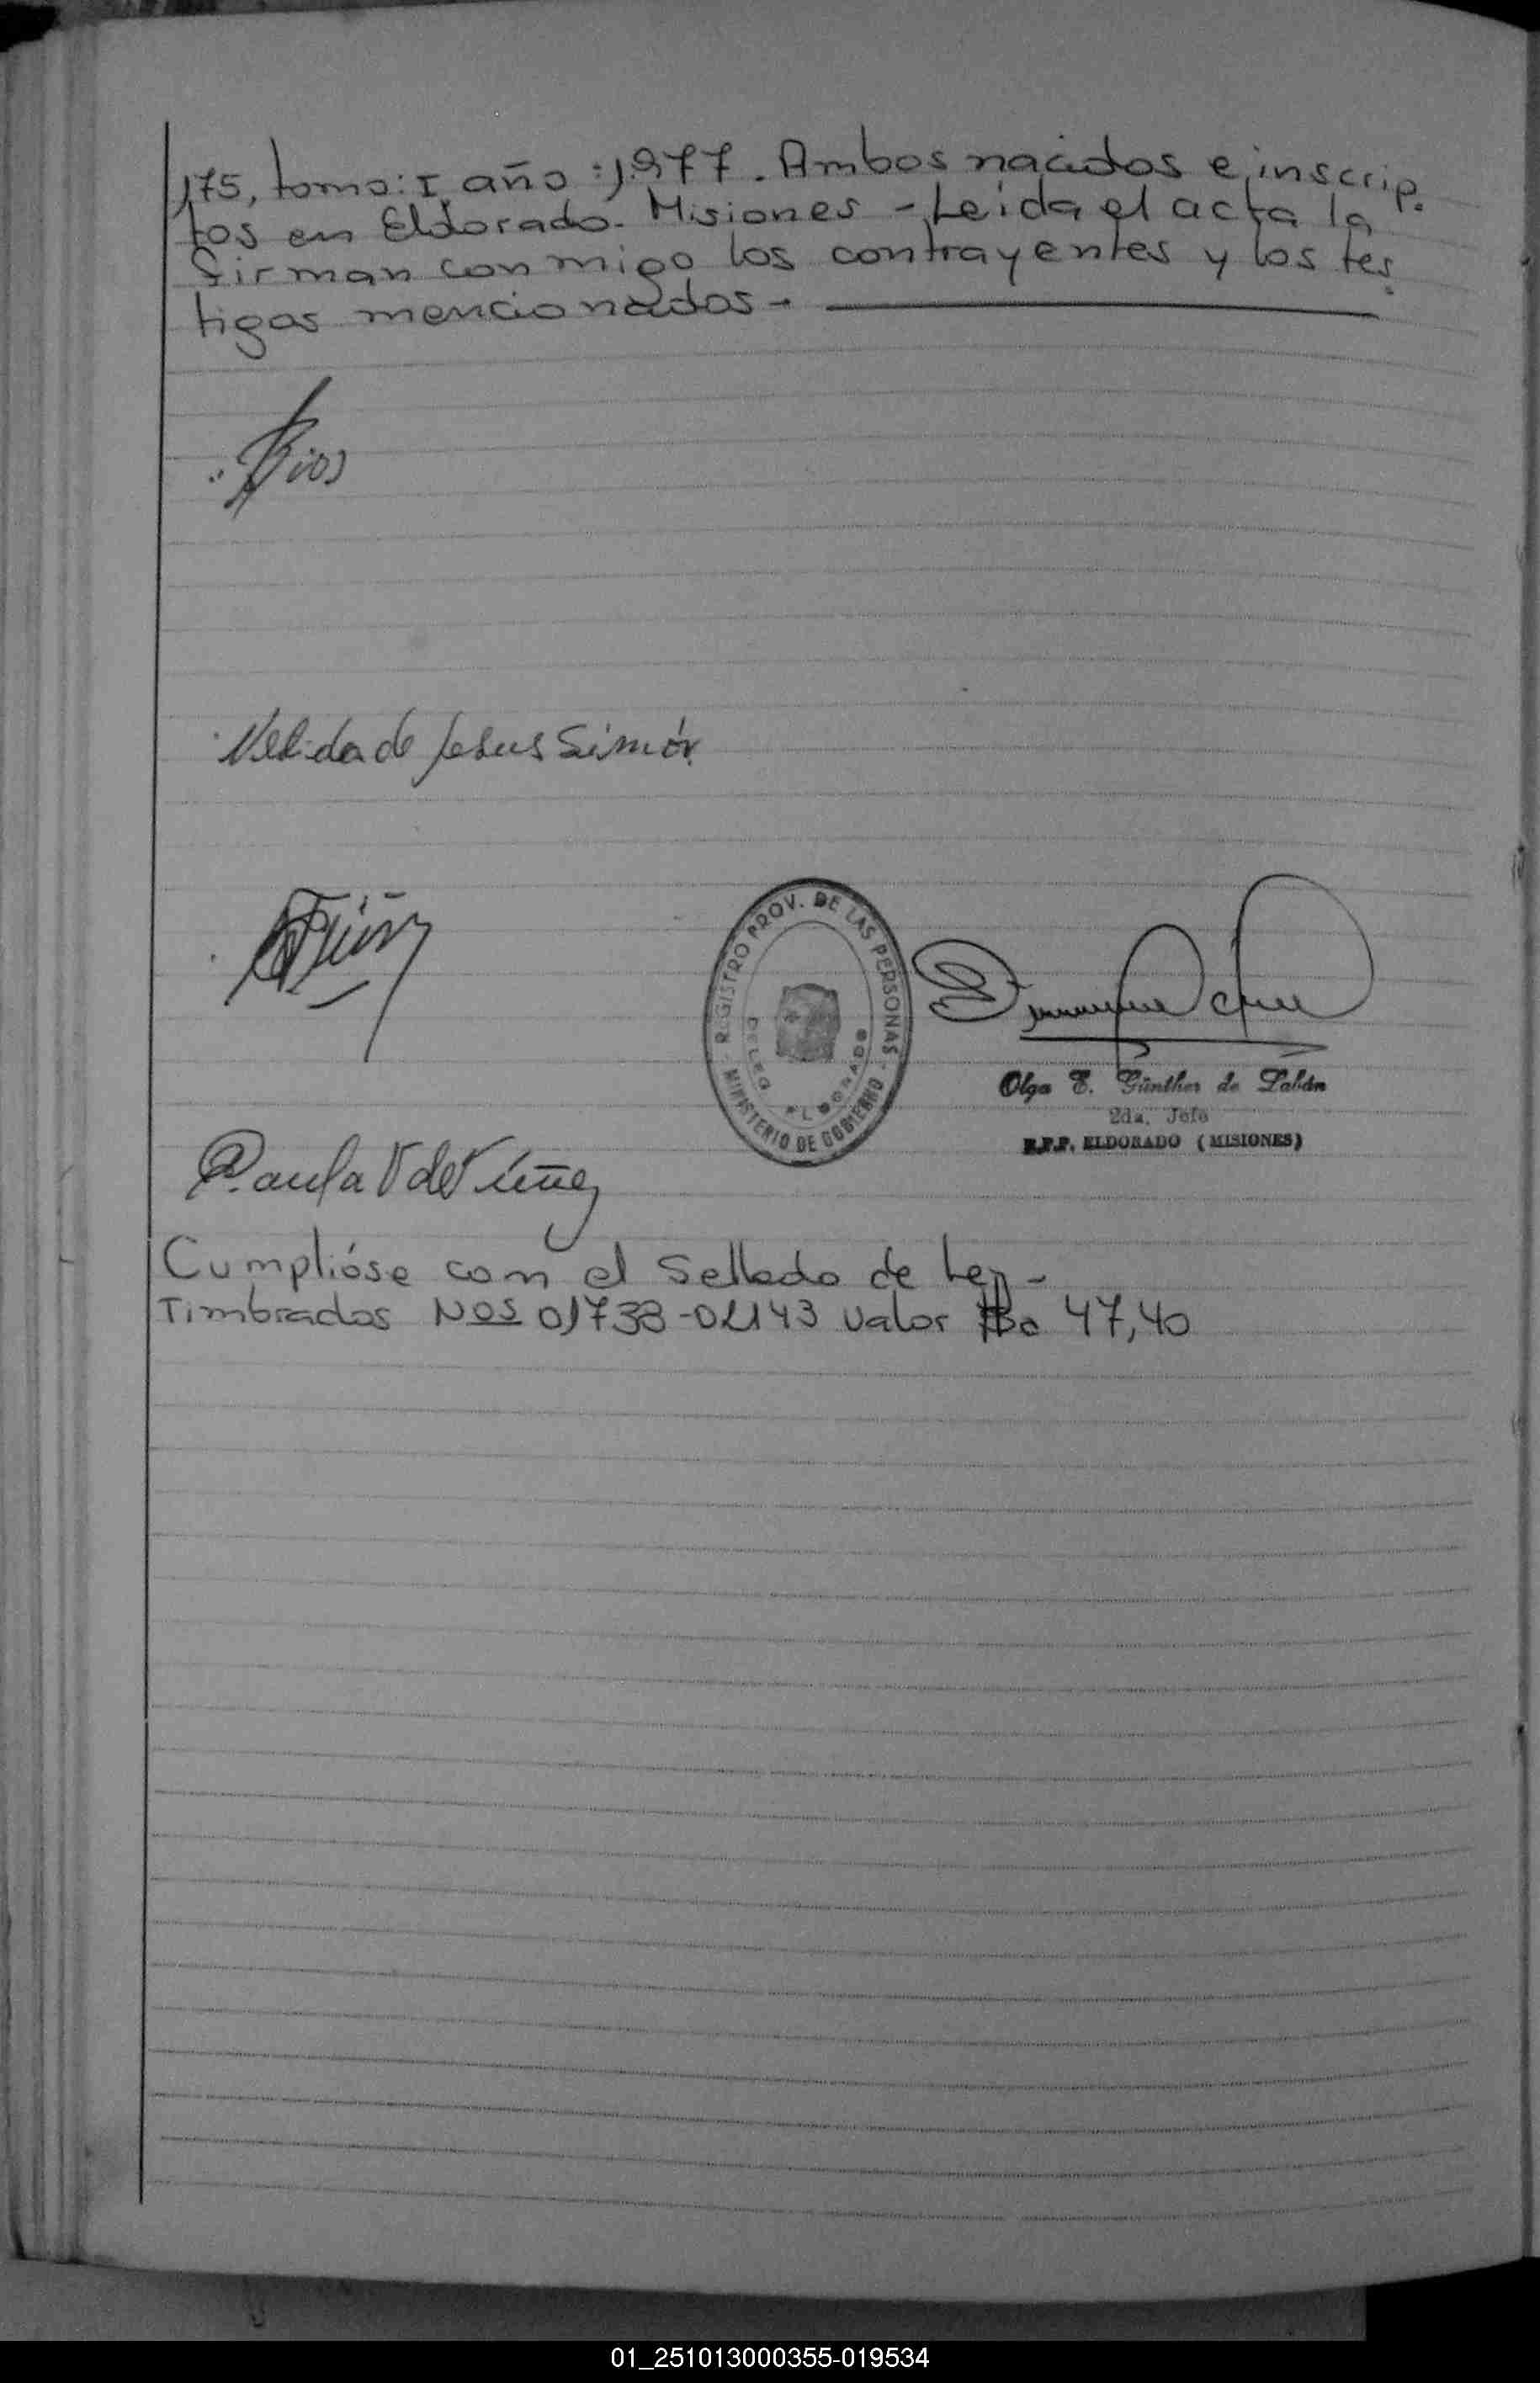 175, tomo: I, año: 1.977. Ambos nacidos e inscrip.
tos en Eldorado. Misiones - Leída el acta la
firman conmigo los contrayentes y los tes.
tigos mencionados -
Rios
Nelida de Jesus Simón
REGISTRO PROV. DE LAS PERSONAS - MINISTERIO DE GOBIERNO -
DELEG ELDORADO
Olga E. Günther de Labán
2da. Jefe
R.P.P. ELDORADO (MISIONES)
Paula V de Núñez
Cumplióse con el Sellado de Ley -
Timbrados Nos 01738-02143 valor 47,40
01_251013000355-019534